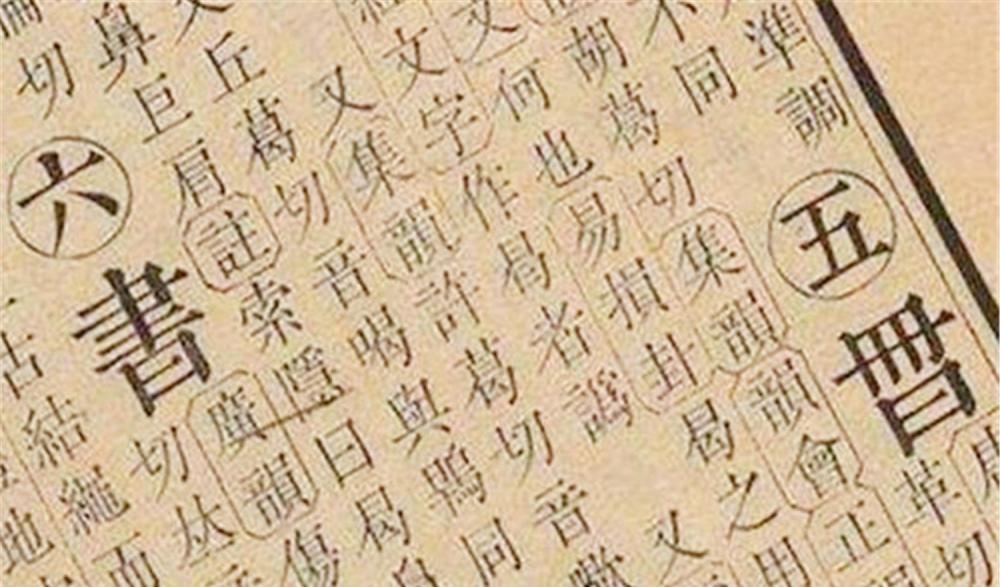 準調
五
革切
不同
胡葛切集韻韻會正
文何也易損卦曷之用
文字作曷者譌 又
又集韻許葛切音歇
丘葛切音喝與鶡同
鼻巨肩註索隱曰曷鼻
切
六
書
廣韻傷
切
古結繩而
地